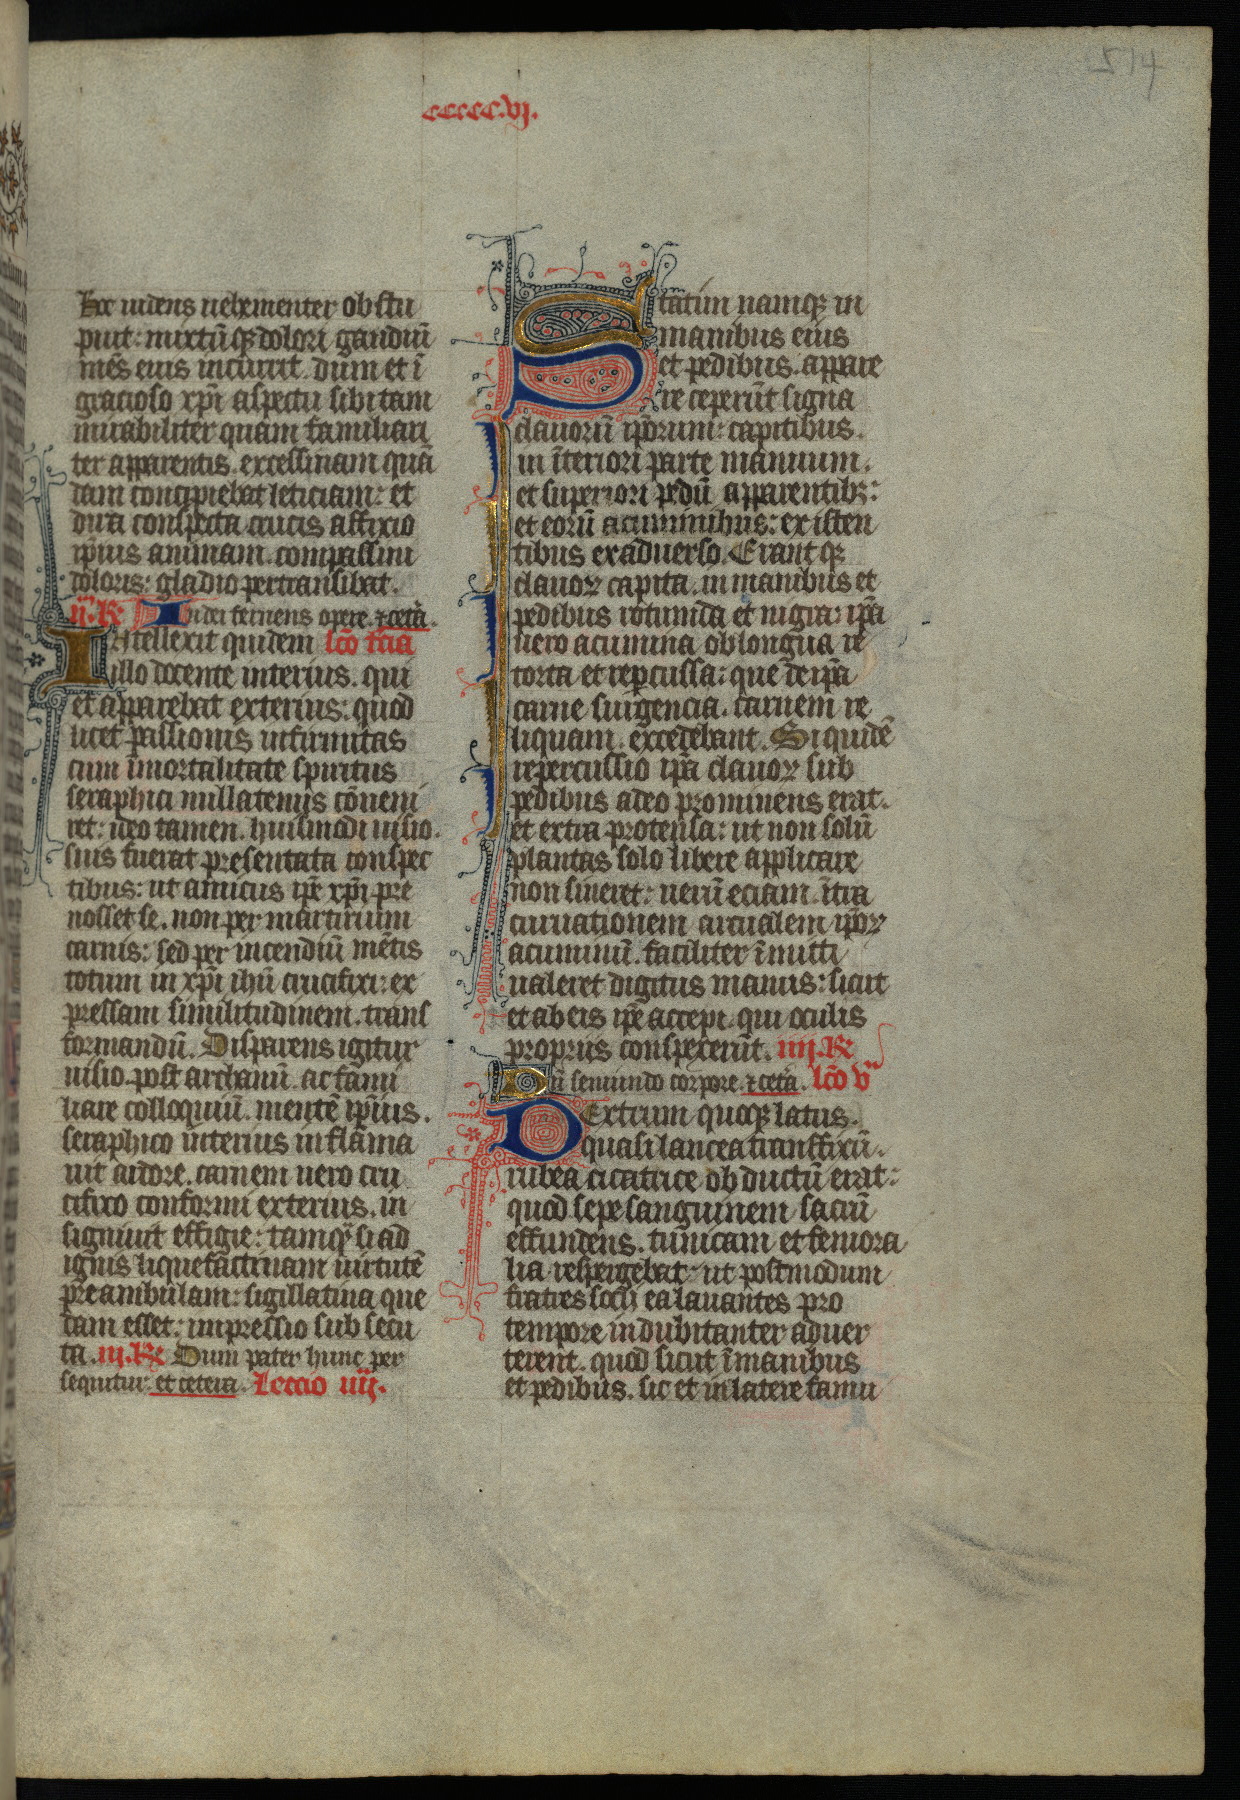 514
ccccc.vj.
Hec uidens uehementer obstu
puit: mixtū q̄ dolori gaudiū
mēs eius incurrit. dum et ī
gracioso xp̄i aspectu sibi tam
mirabiliter quam familiari
ter apparentis. excessiuam quā
dam concipiebat leticiam: et
dira conspecta crucis affixio
ip̄ius animam. compassiui
doloris: gladio pertransibat.
ij. R̄ fidei feruens opere. ⁊ cetā.
Intellexit quidem lc̄o tc̄ia
illo docente interius. qui
et apparebat exterius: quod
licet passionis infirmitas
cum īmortalitate spiritus
seraphici nullatenus cōueni
ret: ideo tamen. huiusmodi uisio.
suis fuerat presentata conspec
tibus: ut amicus ip̄e xp̄i pre
nosset se. non per martirium
carnis: sed per incendiū mētis
totum in xp̄i ihū crucifixi: ex
pressam similitudinem. trans
formandū. Disparens igitur
uisio. post archanū. ac fami
liare colloquiū. mentē ip̄ius.
seraphico interius inflāma
uit ardore. carnem uero cru
cifixo conformi exterius. in
signiuit effigie: tamq̄ si ad
ignis liquefactiuam uirtutē
preambulam: sigillatiua que
dam esset: impressio subsecu
ta. iij. R̄ Dum pater hunc per
sequitur et cetera. Leccio iiij.
Statim namq̄ in
manibus eius
et pedibus. appare
re ceperūt signa
clauorū ip̄orum: capitibus.
in īteriori parte manuum.
et superiori pedū apparentibꝫ:
et eorū acuminibus: existen
tibus ex aduerso. Erant q̄
clauoꝝ capita. in manibus et
pedibus rotunda et nigra: ip̄a
uero acumina oblongua re
torta et repcussa: que de ip̄a
carne surgencia. carnem re
liquam. excedebant. Siquidē
repercussio ip̄a clauoꝝ sub
pedibus adeo prominens erat.
et extra protensa: ut non solū
plantas solo libere applicare
non sineret: uerū eciam. ītra
curuationem arcualem ip̄oꝝ
acuminū. faciliter īmitti
ualeret digitus manus: sicut
et ab eis ip̄e accepi. qui oculis
proprijs conspexerūt. iiij. R̄
In seminudo corpore. ⁊ cetā. lc̄o vᵃ
Dextrum quoqꝫ latus.
quasi lancea transfixū.
rubea cicatrice obductū erat:
quod sepe sanguinem sacrū
effundens. tunicam et femora
lia respergebat: ut postmodum
fratres socij ea lauantes pro
tempore indubitanter aduer
terent. quod sicut ī manibus
et pedibus. sic et in latere famu